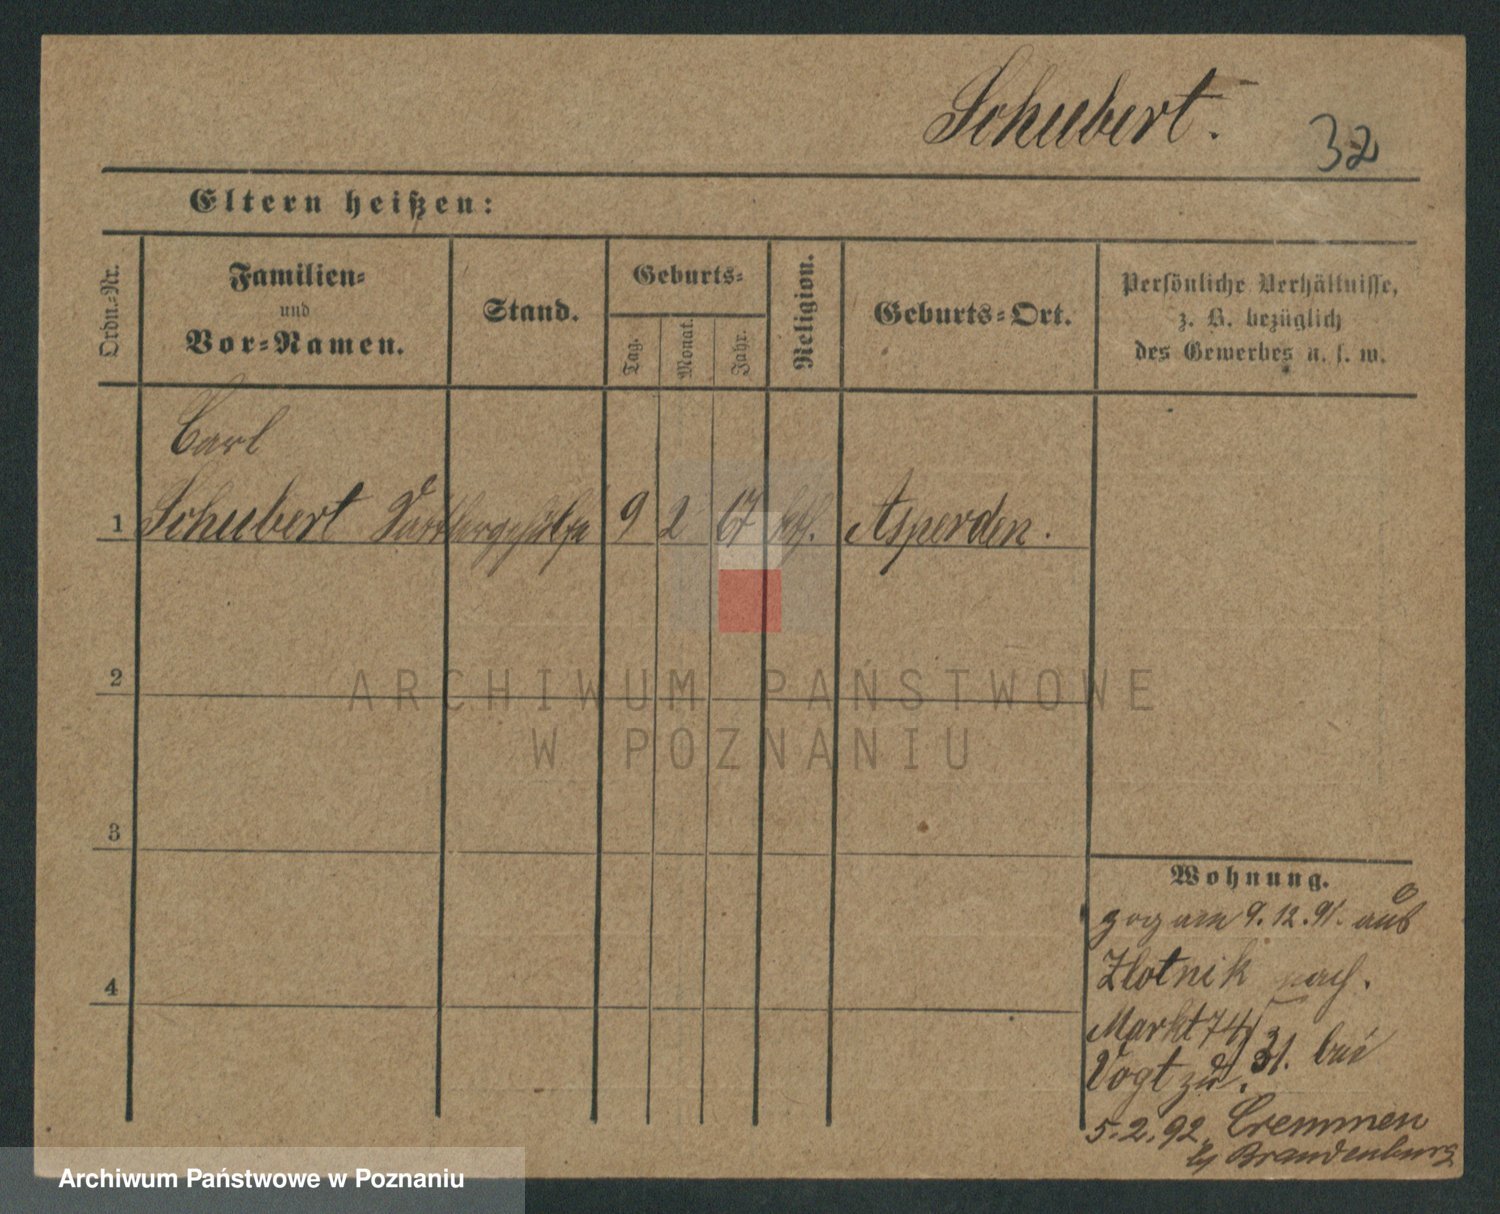 Schubert.
32
Eltern heißen:
Ordn.-Nr.
Familien-
und
Vor-Namen.
Stand.
Geburts-
Tag.
Monat.
Jahr.
Religion.
Geburts-Ort.
Persönliche Verhältnisse,
z. B. bezüglich
des Gewerbes u. s. w.
Carl
1 Schubert 9 2 67 Asperden.
2
3
4
ARCHIWUM PAŃSTWOWE
W POZNANIU
Wohnung.
zog am 9.12.91. aus
Zlotnik nach.
Markt 74
Vogt zu. 31. bei
5.2.92. Cremmen
Brandenburg
Archiwum Państwowe w Poznaniu